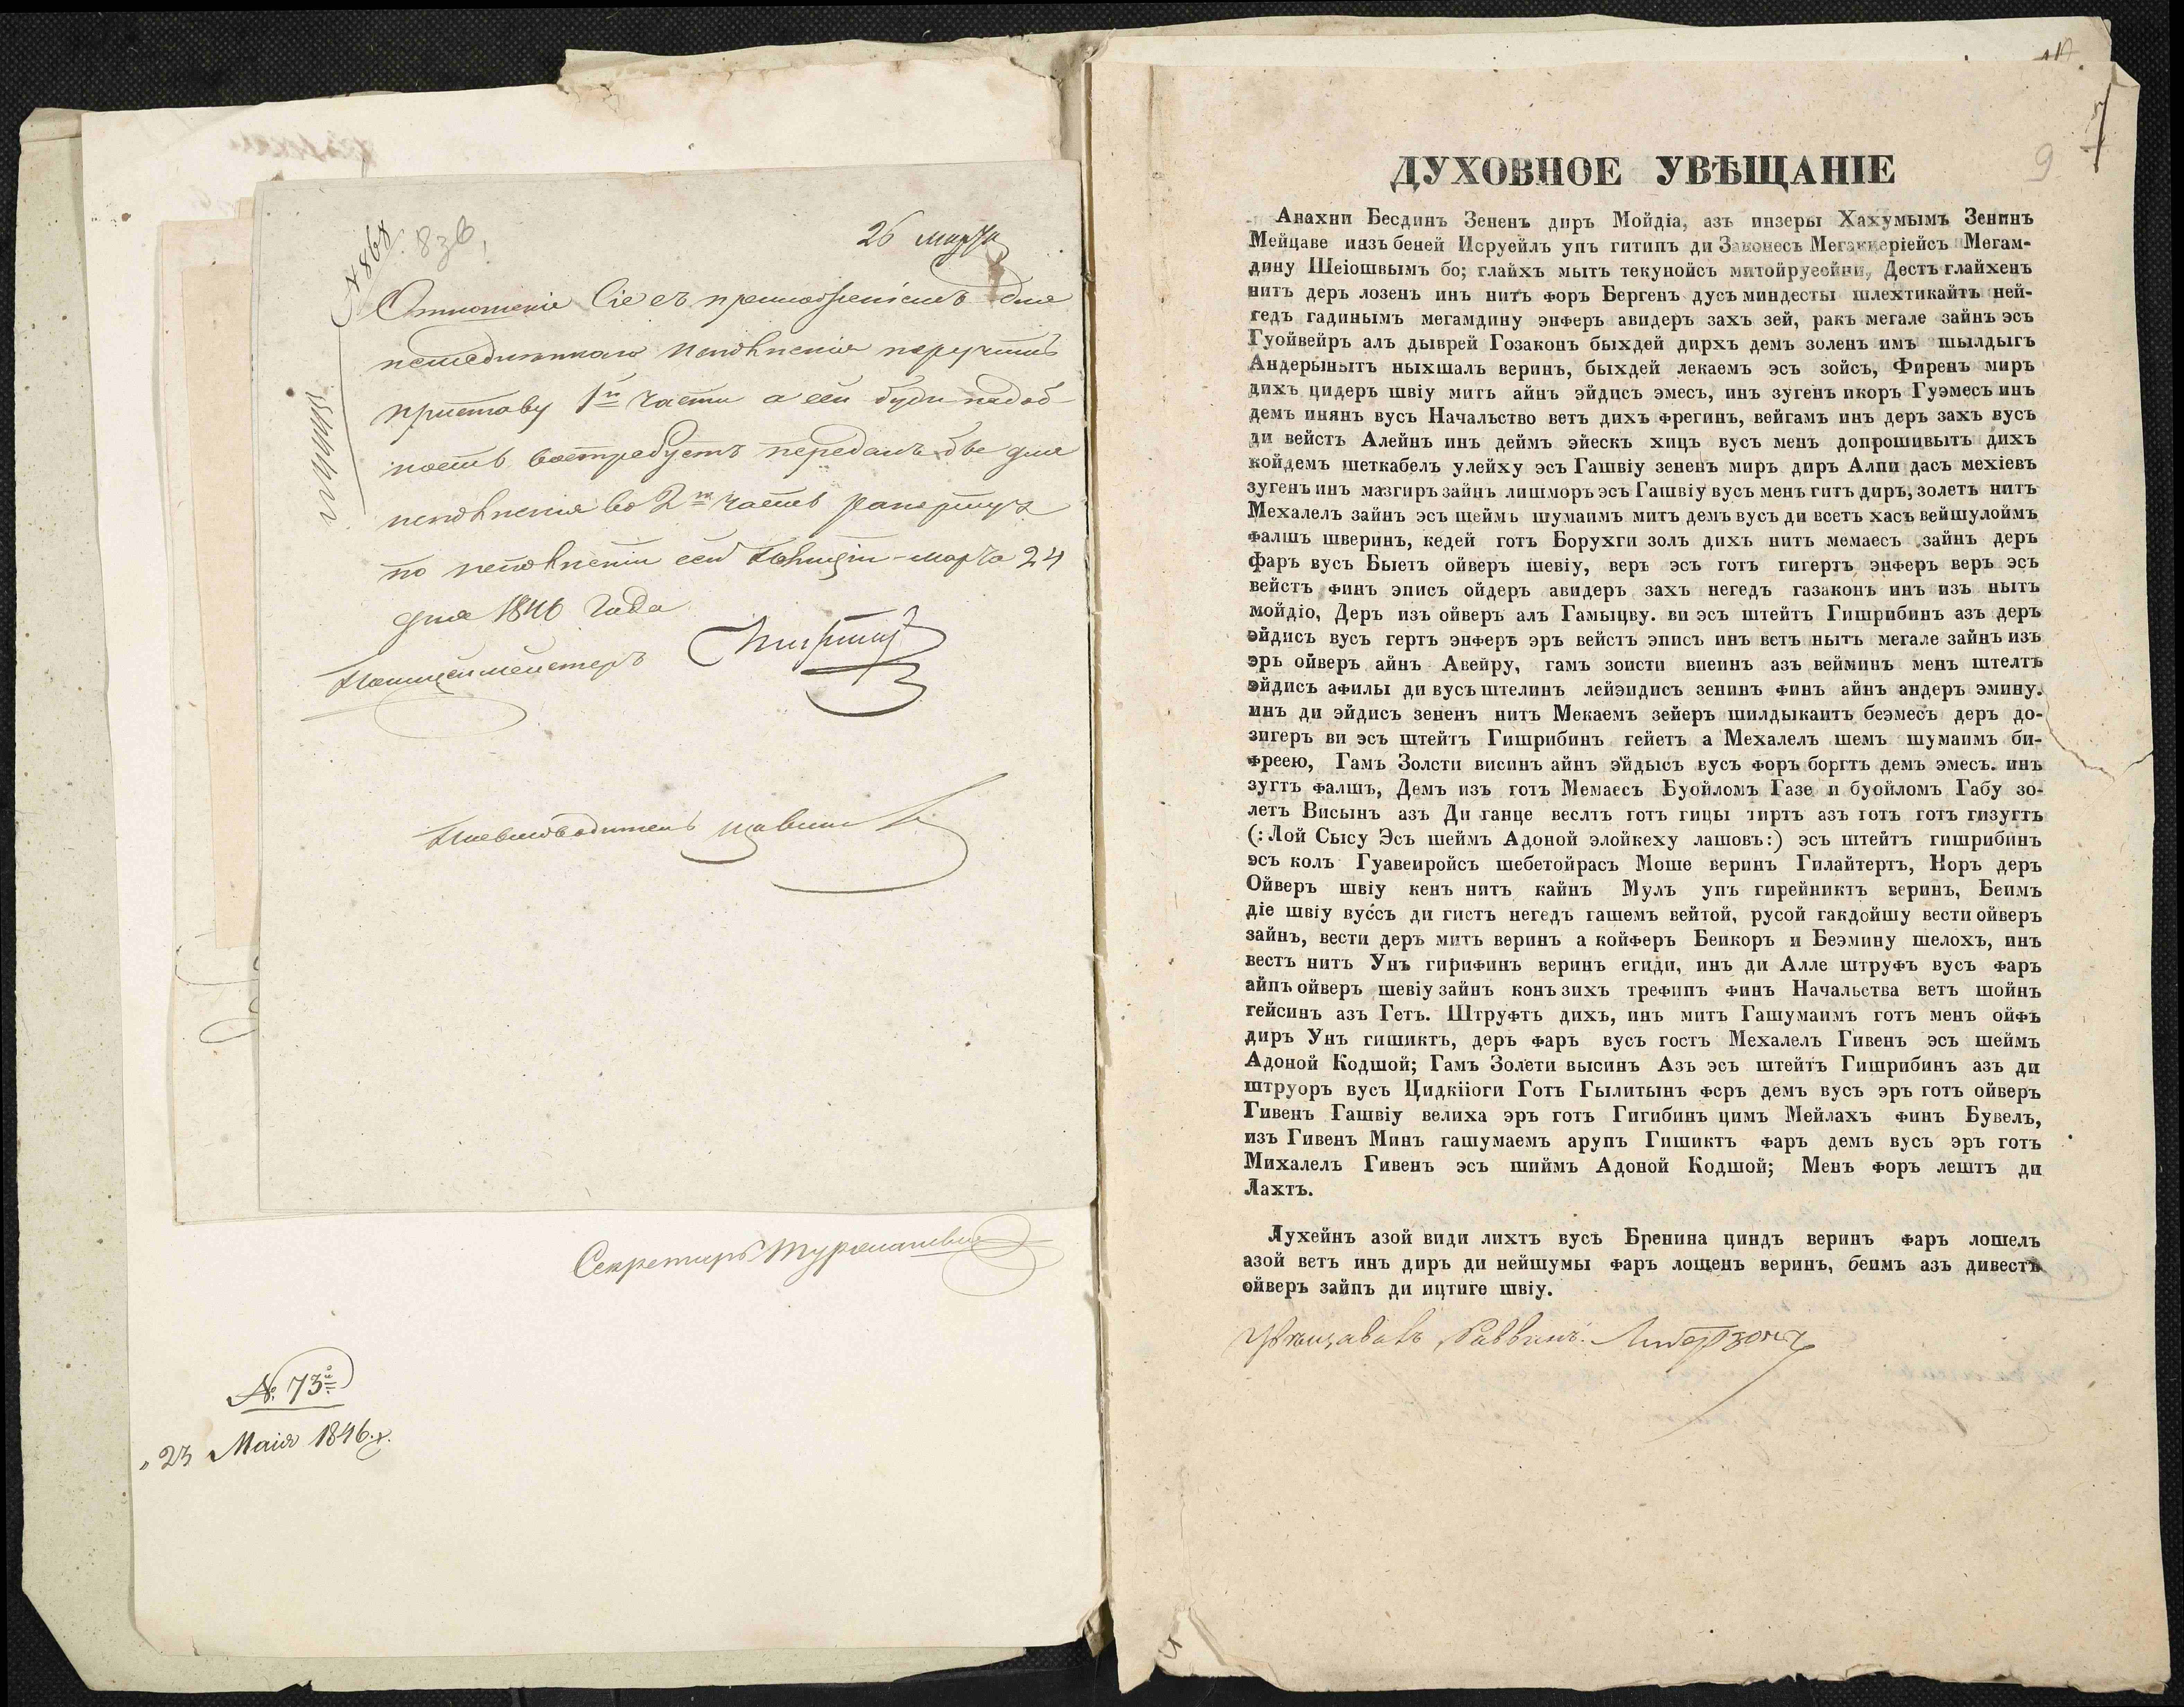 № 868. 836,
26 марта
Отношеніе сіе съ приложеніемъ для
немедленнаго исполненія поручить
приставу 1й части а если будетъ надоб-
ность востребуетъ передать бы для
исполненія во 2ю часть рапортуя
по исполненіи сей Полиціи марта 24
дня 1846 года
Полицеймейстеръ
Письмоводитель
Секретарь
№ 73й
23 Маія 1846 г.
9 7
ДУХОВНОЕ УВѢЩАНІЕ
Анахни Бесдинъ Зененъ диръ Мойдіа, азъ инзеры Хахумымъ Зенинъ
Мейцаве иязъ беней Исруейлъ упъ гитипъ ди Законесъ Мегаккеріейсъ Мегам-
дину Шеіошвымъ бо; глайхъ мытъ текунойсъ митойруесйни, Дестъ глайхенъ
нитъ деръ лозенъ инъ нитъ форъ Бергенъ дусъ миндесты шлехтикайтъ ней-
гедъ гадинымъ мегамдину энферъ авидеръ захъ зей, ракъ мегале зайнъ эсъ
Гуойвейръ алъ дыврей Гозаконъ быхдей дирхъ демъ золенъ имъ шылдыгъ
Андерынытъ ныхшалъ веринъ, быхдей лекаемъ эсъ зойсъ, Фиренъ миръ
дихъ цидеръ швіу митъ айнъ эйдисъ эмесъ, инъ зугенъ икоръ Гуэмесъ инъ
демъ инянъ вусъ Начальство ветъ дихъ фрегинъ, вейгамъ инъ деръ захъ вусъ
ди вейстъ Алейнъ инъ деймъ эйескъ хицъ вусъ менъ допрошивытъ дихъ
койдемъ шеткабелъ улейху эсъ Гашвіу зененъ миръ диръ Алпи дасъ мехіевъ
зугенъ инъ мазгиръ зайнъ лишморъ эсъ Гашвіу вусъ менъ гитъ диръ, золетъ нитъ
Мехалелъ зайнъ эсъ шеймъ шумаимъ митъ демъ вусъ ди всетъ хасъ вейшулоймъ
фалшъ шверинъ, кедей готъ Борухги золъ дихъ нитъ мемаесъ зайнъ деръ
фаръ вусъ Быетъ ойверъ шевіу, веръ эсъ готъ гигертъ энферъ веръ эсъ
вейстъ финъ эписъ ойдеръ авидеръ захъ негедъ газаконъ инъ изъ нытъ
мойдіо, Деръ изъ ойверъ алъ Гамыцву. ви эсъ штейтъ Гишрибинъ азъ деръ
эйдисъ вусъ гертъ энферъ эръ вейстъ эписъ инъ ветъ нытъ мегале зайнъ изъ
эръ ойверъ айнъ Авейру, гамъ зоисти виеинъ азъ вейминъ менъ штелтъ
эйдисъ афилы ди вусъ штелинъ лейэидисъ зенинъ финъ айнъ андеръ эмину.
инъ ди эйдисъ зененъ нитъ Мекаемъ зейеръ шилдыкаитъ беэмесъ деръ до-
зигеръ ви эсъ штейтъ Гишрибинъ гейетъ а Мехалелъ шемъ шумаимъ би-
фреею, Гамъ Золсти висинъ айнъ эйдысъ вусъ форъ боргтъ демъ эмесъ. инъ
зугтъ фалшъ, Демъ изъ готъ Мемаесъ Буойломъ Газе и буойломъ Габу зо-
летъ Висынъ азъ Ди ганце веслтъ готъ гицы тиртъ азъ готъ готъ гизугтъ
(: Лой Сысу Эсъ шеймъ Адоной элойкеху лашовъ:) эсъ штейтъ гишрибинъ
эсъ колъ Гуавеиройсъ шебетойрасъ Моше веринъ Гилайтертъ, Норъ деръ
Ойверъ швіу кенъ нитъ кайнъ Мулъ упъ гирейниктъ веринъ, Беимъ
діе швіу вуссъ ди гистъ негедъ гашемъ вейтой, русой гакдойшу вести ойверъ
зайнъ, вести деръ митъ веринъ а койферъ Беикоръ и Беэмину шелохъ, инъ
вестъ нитъ Унъ гирифинъ веринъ егиди, инъ ди Алле штруфъ вусъ фаръ
айпъ ойверъ шевіу зайнъ конъ зихъ трефипъ финъ Начальства ветъ шойнъ
гейсинъ азъ Гетъ. Штруфтъ дихъ, инъ митъ Гашумаимъ готъ менъ ойфъ
диръ Унъ гишиктъ, деръ фаръ вусъ гостъ Мехалелъ Гивенъ эсъ шеймъ
Адоной Кодшой; Гамъ Золети высинъ Азъ эсъ штейтъ Гишрибинъ азъ ди
штруоръ вусъ Цидкііоги Готъ Гылитынъ феръ демъ вусъ эръ готъ ойверъ
Гивенъ Гашвіу велиха эръ готъ Гигибинъ цимъ Мейлахъ финъ Бувелъ,
изъ Гивенъ Минъ гашумаемъ арупъ Гишиктъ фаръ демъ вусъ эръ готъ
Михалелъ Гивенъ эсъ шиймъ Адоной Кодшой; Менъ форъ лештъ ди
Лахтъ.
Лухейнъ азой види лихтъ вусъ Бренина циндъ веринъ фаръ лошелъ
азой ветъ инъ диръ ди нейшумы фаръ лощенъ веринъ, беимъ азъ дивестъ
ойверъ зайпъ ди ицтиге швіу.
Увѣщавалъ Раввинъ Либерзонъ